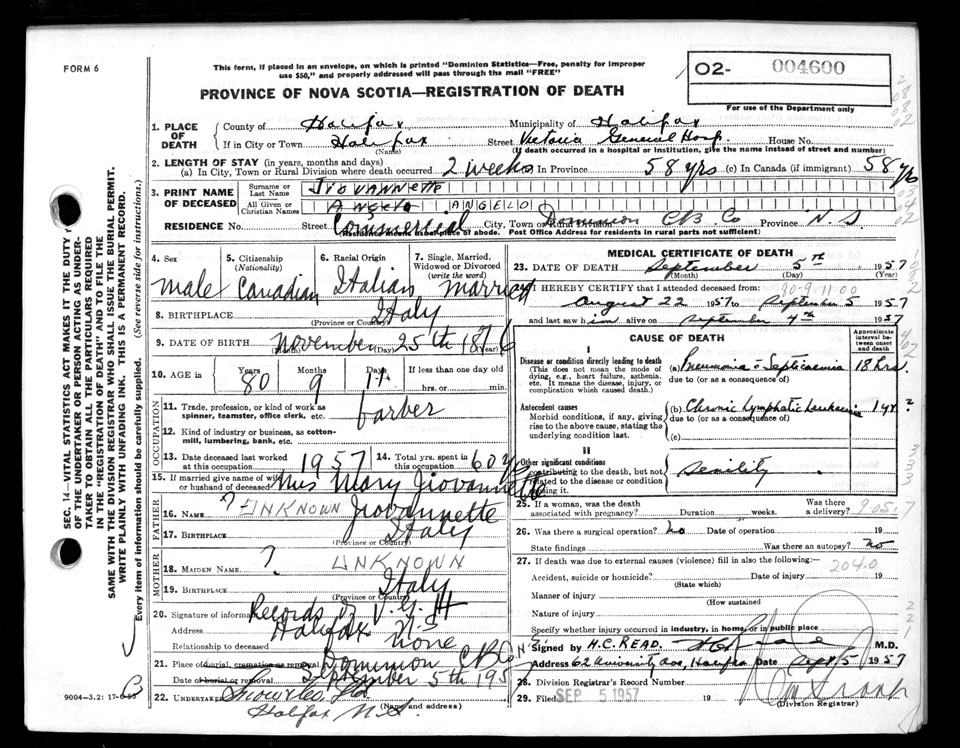 FORM 6
This form, if placed in an envelope, on which is printed "Dominion Statistics—Free, penalty for improper
use $50," and properly addressed will pass through the mail "FREE"
PROVINCE OF NOVA SCOTIA—REGISTRATION OF DEATH
02- 004600
For use of the Department only
SEC. 14—VITAL STATISTICS ACT MAKES IT THE DUTY
OF THE UNDERTAKER OR PERSON ACTING AS UNDER-
TAKER TO OBTAIN ALL THE PARTICULARS REQUIRED
IN THE "REGISTRATION OF DEATH" AND TO FILE THE
SAME WITH THE DIVISION REGISTRAR WHO SHALL ISSUE THE BURIAL PERMIT.
WRITE PLAINLY WITH UNFADING INK. THIS IS A PERMANENT RECORD.
Every item of information should be carefully supplied. (See reverse side for instructions.)
1. PLACE OF DEATH County of Halifax Municipality of Halifax
If in City or Town Halifax Street Victoria General Hosp. House No.
(Name) (If death occurred in a hospital or institution, give the name instead of street and number)
2. LENGTH OF STAY (in years, months and days)
(a) In City, Town or Rural Division where death occurred 2 weeks In Province 58 yrs (c) In Canada (if immigrant) 58 yrs
3. PRINT NAME OF DECEASED Surname or Last Name JIOVANNETTE
All Given or Christian Names ANGELO
RESIDENCE No. Street Commercial City, Town or Rural Division Dominion CB Co Province N.S.
Residence means usual place of abode. Post Office Address for residents in rural parts not sufficient)
4. Sex male
5. Citizenship (Nationality) Canadian
6. Racial Origin Italian
7. Single, Married, Widowed or Divorced (write the word) married
8. BIRTHPLACE Italy
(Province or Country)
9. DATE OF BIRTH November 25th 1876
(Month) (Day) (Year)
10. AGE in Years 80 Months 9 Days 11 If less than one day hrs. or min.
OCCUPATION
11. Trade, profession, or kind of work as spinner, teamster, office clerk, etc. barber
12. Kind of industry or business, as cotton-mill, lumbering, bank, etc.
13. Date deceased last worked at this occupation 1957
14. Total yrs. spent in this occupation 60 y
15. If married give name of wife or husband of deceased Mrs Mary Jiovannette
FATHER
16. NAME ? UNKNOWN Jiovannette
17. BIRTHPLACE Italy
(Province or Country)
MOTHER
18. MAIDEN NAME ? UNKNOWN
19. BIRTHPLACE Italy
(Province or Country)
20. Signature of informant Records of V.G.H
Address Halifax N.S
Relationship to deceased none
21. Place of burial, cremation or removal Dominion CB Co N.S.
Date of burial or removal September 5th 195
22. UNDERTAKER Snow & Co Ltd
Halifax N.S. (Name and address)
9004—3.2: 17-
MEDICAL CERTIFICATE OF DEATH
23. DATE OF DEATH September 5th 1957
(Month) (Day) (Year)
I HEREBY CERTIFY that I attended deceased from:
90-9.11.00
August 22 1957 to September 5 1957
and last saw him alive on September 4th 1957
CAUSE OF DEATH
Approximate interval between onset and death
I
Disease or condition directly leading to death
(This does not mean the mode of dying, e.g., heart failure, asthenia, etc. It means the disease, injury, or complication which caused death.)
(a) Pneumonia - Septicaemia 18 hrs.
due to (or as a consequence of)
Antecedent causes
Morbid conditions, if any, giving rise to the above cause, stating the underlying condition last.
(b) Chronic Lymphatic Leukaemia 1 yr. ?
due to (or as a consequence of)
(c)
II
Other significant conditions
contributing to the death, but not related to the disease or condition causing it.
Senility
25. If a woman, was the death associated with pregnancy? Duration weeks. Was there a delivery?
26. Was there a surgical operation? no Date of operation 19
State findings Was there an autopsy? no
27. If death was due to external causes (violence) fill in also the following:—
2040
Accident, suicide or homicide? Date of injury 19
(State which)
Manner of injury
(How sustained
Nature of injury
Specify whether injury occurred in industry, in home, or in public place
Signed by H.C. READ. M.D.
Address 62 University Ave, Halifax Date Sept. 5 1957
28. Division Registrar's Record Number
29. Filed SEP 5 1957 19
(Division Registrar)